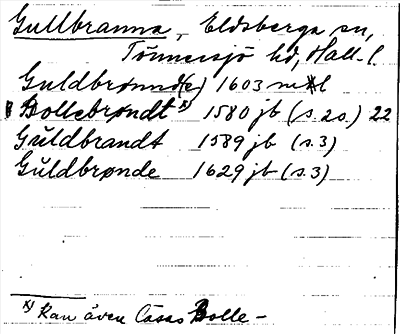 Gullbranna, Eldsberga sn,
Tönnersjö hd, Hall. l.
Guldbrønnd(e) 1603 mtl
Bollebrøndt x) 1580 jb (s. 20.) 22
Gŭldbrandt 1589 jb (s. 3)
Gŭldbrønde 1629 jb (s. 3)
x) Kan även läsas Bolle-